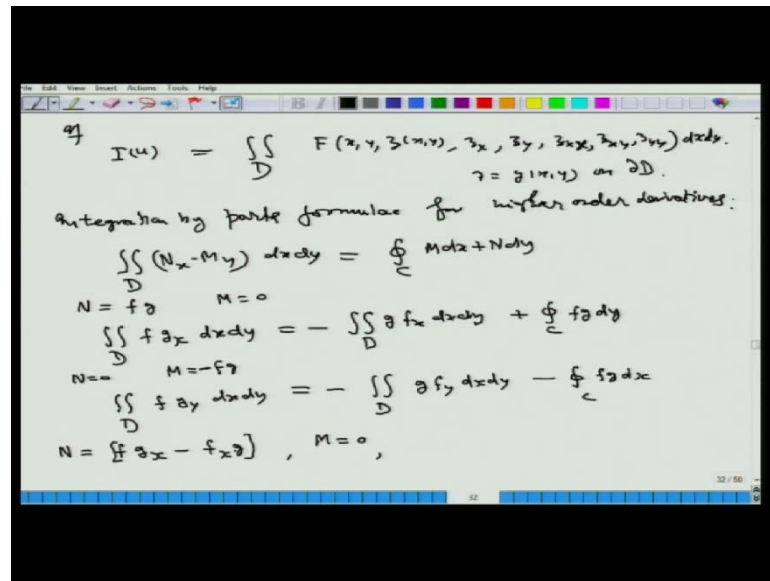 File Edit View Insert Actions Tools Help
If
I(u) = ∬_D F(x, y, z(x,y), z_x, z_y, z_xx, z_xy, z_yy) dxdy.
z = g(x,y) on ∂D.
Integration by parts formulae for higher order derivatives:
∬_D (N_x - M_y) dxdy = ∮_C Mdx + Ndy
N = fg M = 0
∬_D f g_x dxdy = - ∬_D g f_x dxdy + ∮_C fg dy
N = 0 M = -fg
∬_D f g_y dxdy = - ∬_D g f_y dxdy - ∮_C fg dx
N = [f g_x - f_x g] , M = 0 ,
32 / 50
32